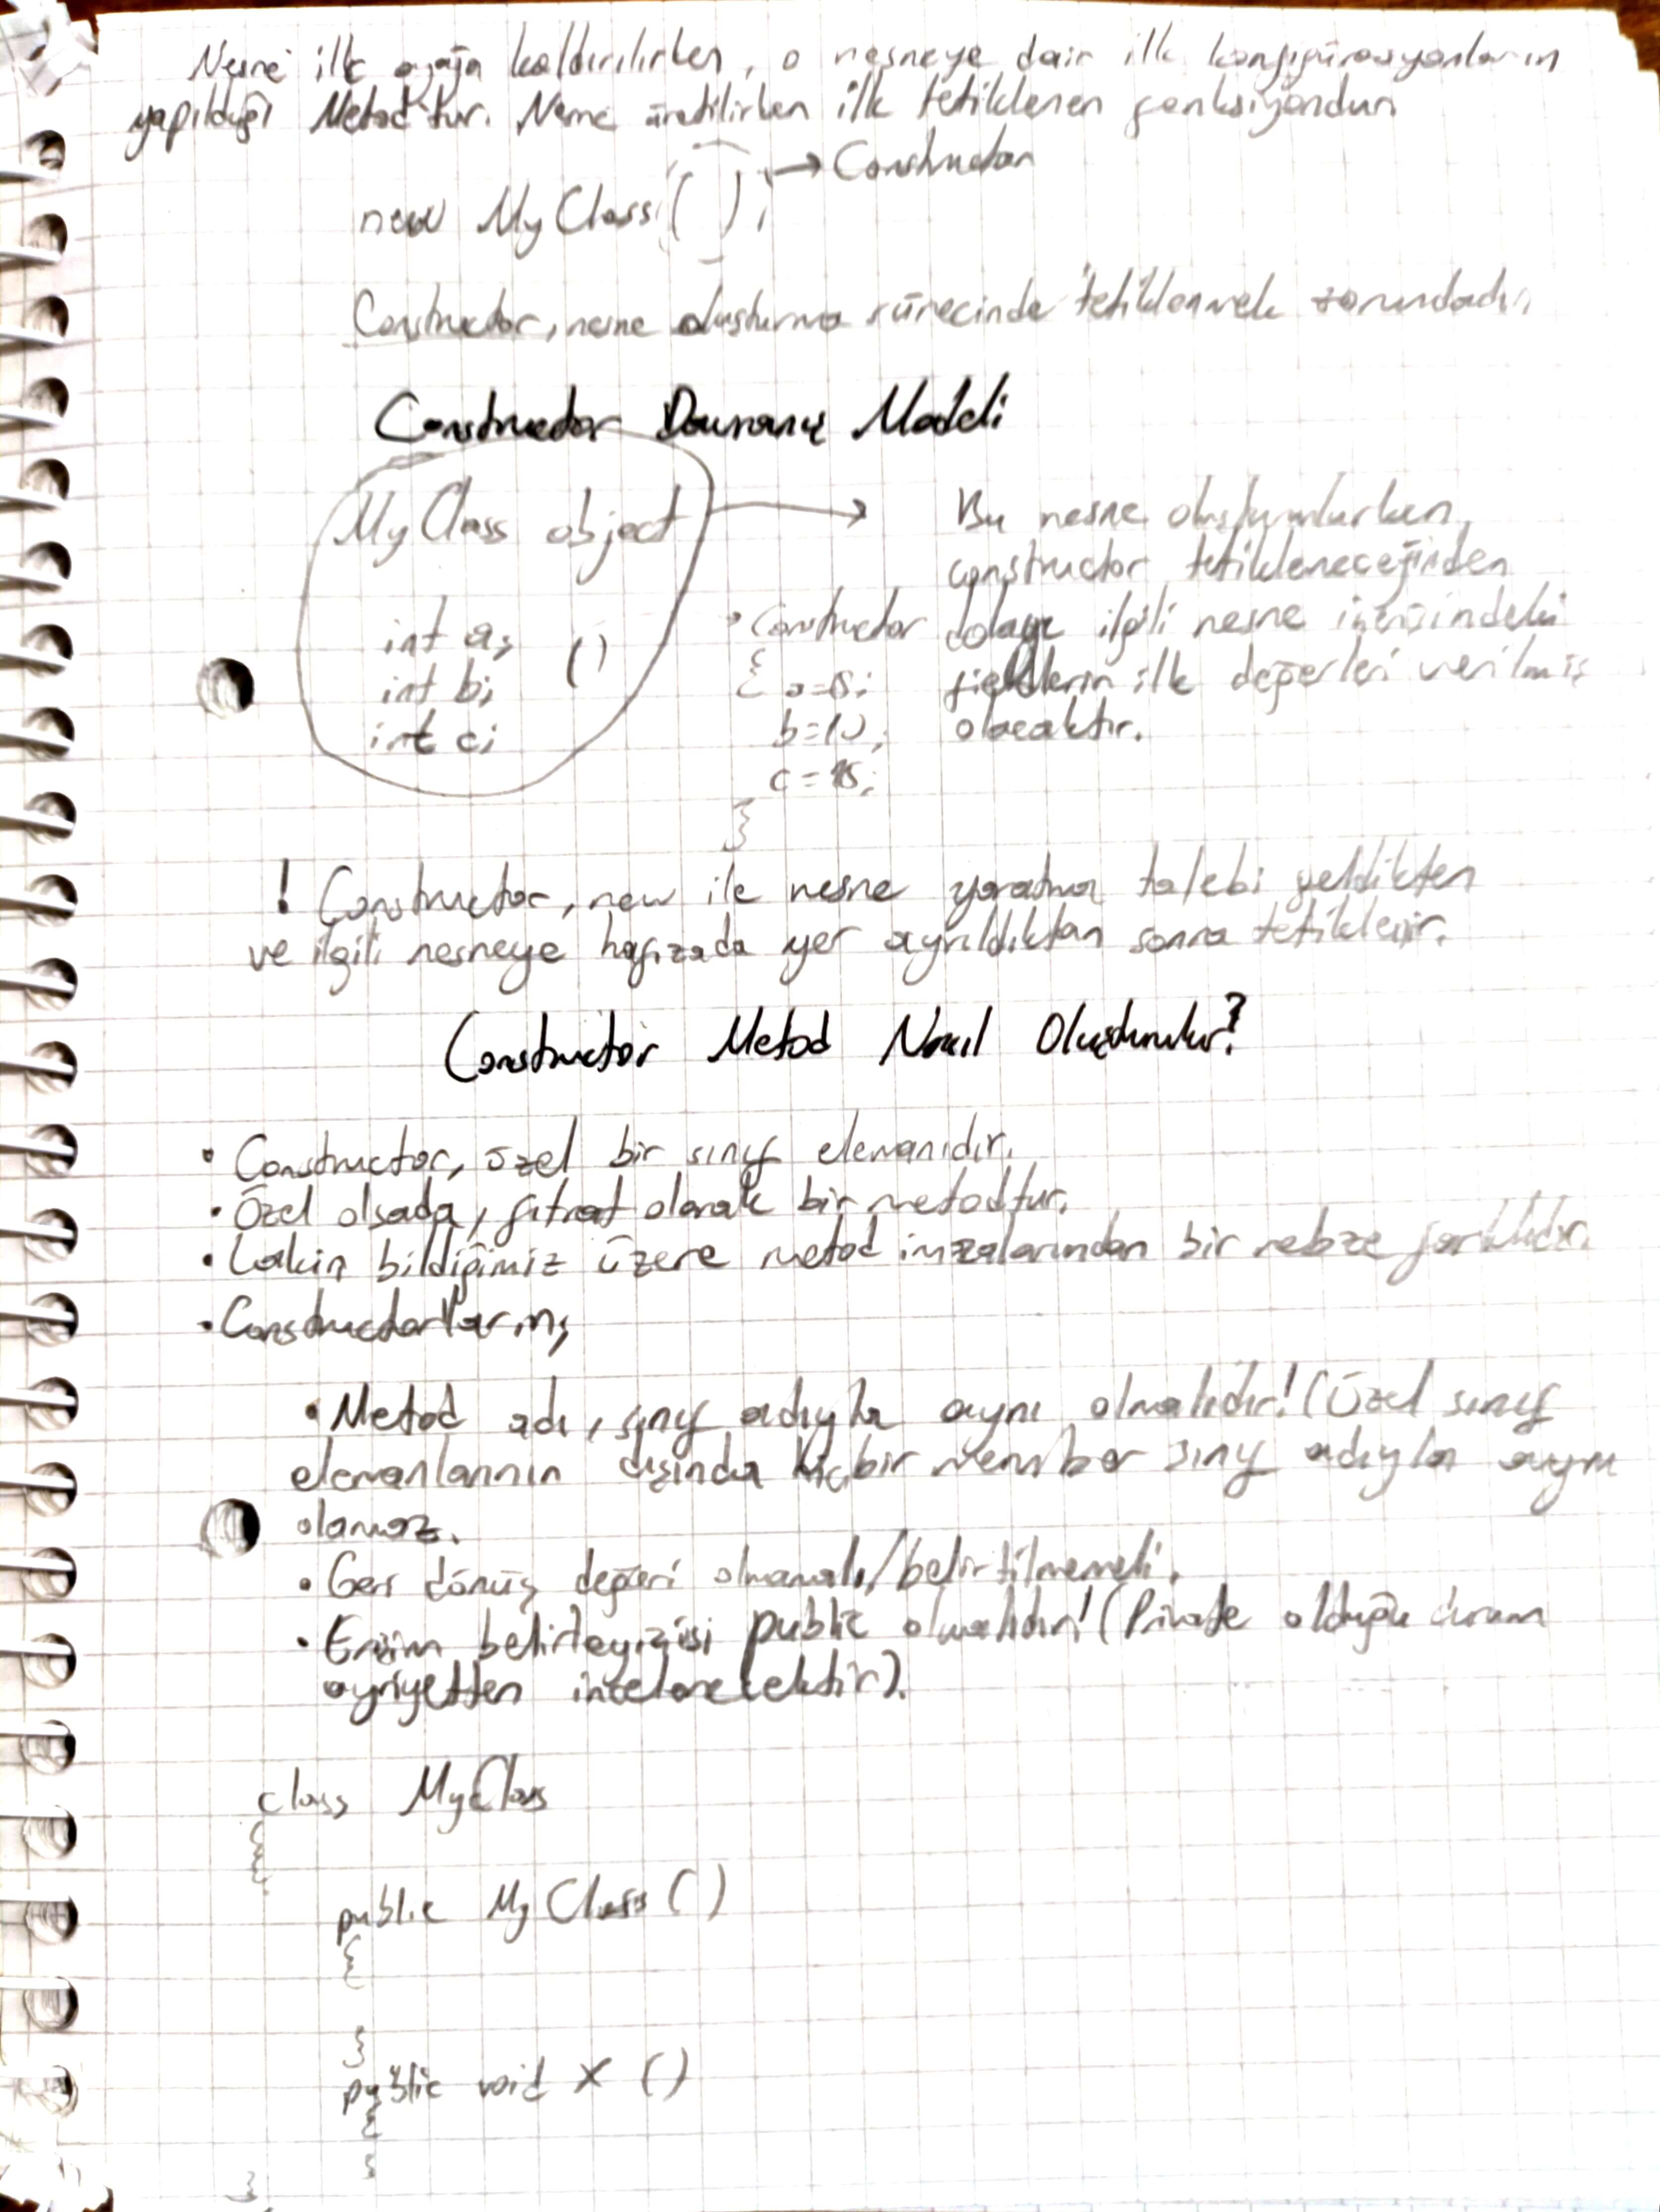 Nesne ilk ayağa kaldırılırken, o nesneye dair ilk konfigürasyonların
yapıldığı Metod'tur. Nesne üretilirken ilk tetiklenen fonksiyondur.
→ Constructor
new MyClass ( );
Constructor, nesne oluşturma sürecinde tetiklenmek zorundadır.
Constructor Davranış Modeli
MyClass object
int a;
int b; ( )
int c;
• Constructor
{ a=5;
b=10;
c=15;
}
Bu nesne oluşturulurken,
constructor tetikleneceğinden
dolayı ilgili nesne içerisindeki
fieldların ilk değerleri verilmiş
olacaktır.
! Constructor, new ile nesne yaratma talebi geldikten
ve ilgili nesneye hafızada yer ayrıldıktan sonra tetiklenir.
Constructor Metod Nasıl Oluşturulur?
• Constructor, özel bir sınıf elemanıdır.
• Özel olsada, fıtrat olarak bir metodtur.
• Lakin bildiğimiz üzere metod imzalarından bir nebze farklıdır.
• Constructorların;
• Metod adı, sınıf adıyla aynı olmalıdır! (Özel sınıf
elemanlarının dışında hiçbir member sınıf adıyla aynı
olamaz.
• Geri dönüş değeri olmamalı/belirtilmemeli.
• Erişim belirleyicisi public olmalıdır! (Private olduğu durum
ayriyetten incelenecektir).
class MyClass
{
public MyClass ( )
{
}
public void X ( )
{
}
}